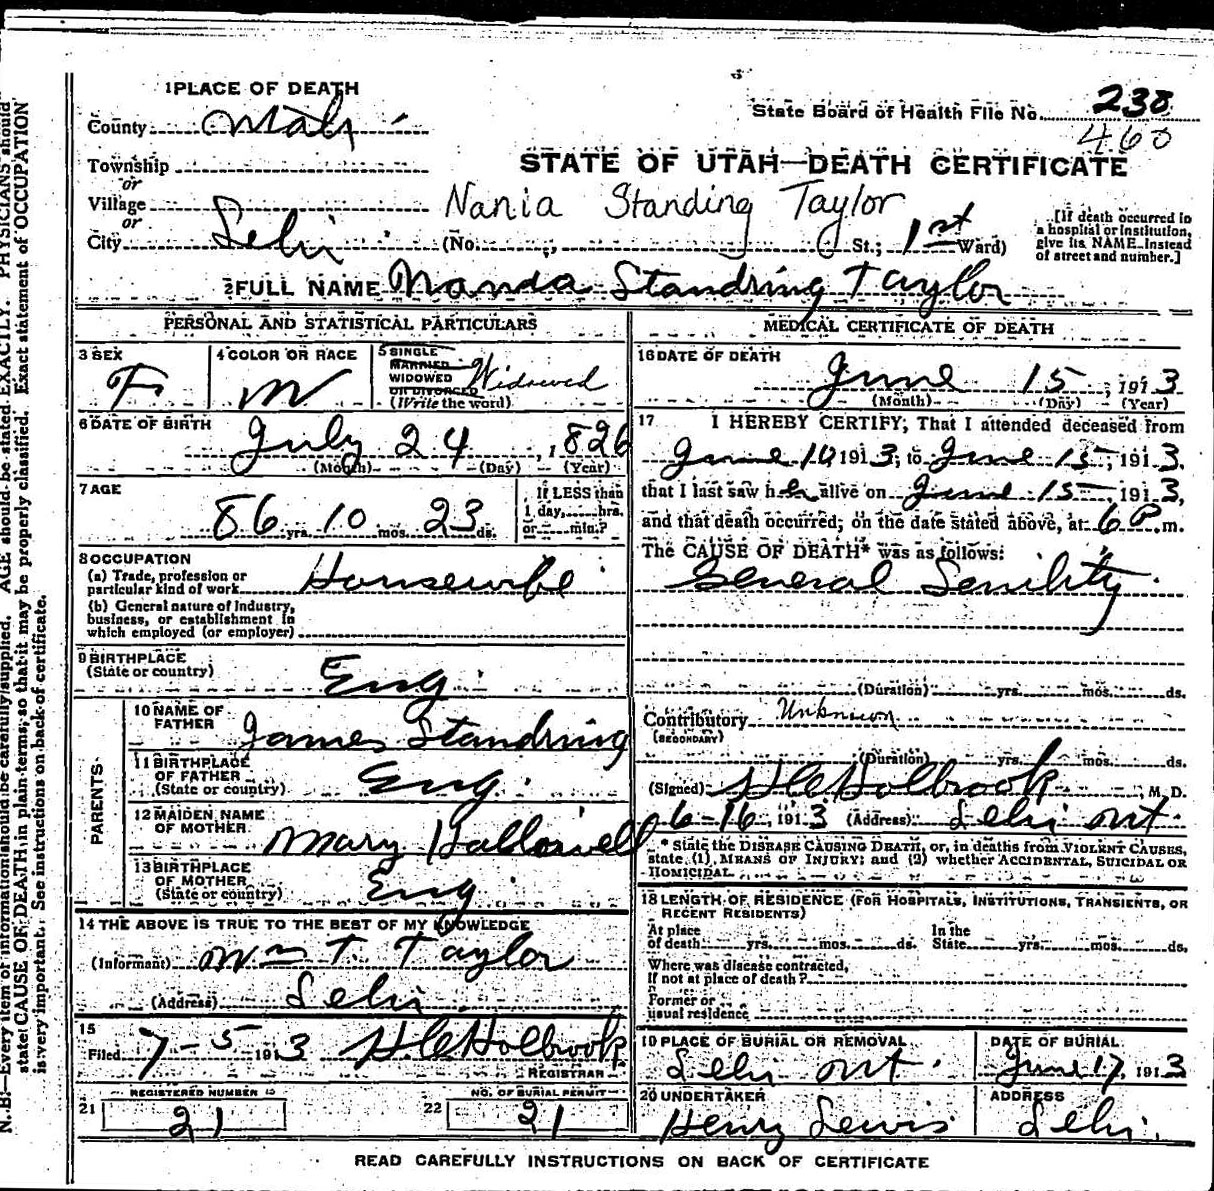 1 PLACE OF DEATH
County Utah
State Board of Health File No. 238
460
Township
or
STATE OF UTAH—DEATH CERTIFICATE
Village
or
Nania Standing Taylor
City Lehi (No. , St.; 1st Ward)
[If death occurred in
a hospital or institution,
give its NAME instead
of street and number.]
2 FULL NAME Nanda Standring Taylor
PERSONAL AND STATISTICAL PARTICULARS
3 SEX
F
4 COLOR OR RACE
W
5 SINGLE
MARRIED
WIDOWED
OR DIVORCED
(Write the word)
Widowed
6 DATE OF BIRTH
July 24, 1826
(Month) (Day) (Year)
7 AGE
86 yrs. 10 mos. 23 ds.
If LESS than
1 day, hrs.
or min.?
8 OCCUPATION
(a) Trade, profession or
particular kind of work Housewife
(b) General nature of industry,
business, or establishment in
which employed (or employer)
9 BIRTHPLACE
(State or country)
Eng
PARENTS
10 NAME OF
FATHER
James Standring
11 BIRTHPLACE
OF FATHER
(State or country)
Eng.
12 MAIDEN NAME
OF MOTHER
Mary Hallowell
13 BIRTHPLACE
OF MOTHER
(State or country)
Eng
14 THE ABOVE IS TRUE TO THE BEST OF MY KNOWLEDGE
(Informant) Wm T. Taylor
(Address) Lehi
15
Filed 7-5 1913 H E Holbrook
REGISTRAR
REGISTERED NUMBER
21 21
NO. OF BURIAL PERMIT
22 21
MEDICAL CERTIFICATE OF DEATH
16 DATE OF DEATH
June 15, 1913
(Month) (Day) (Year)
17 I HEREBY CERTIFY, That I attended deceased from
June 10 1913, to June 15, 1913,
that I last saw her alive on June 15, 1913,
and that death occurred, on the date stated above, at 6 P m.
The CAUSE OF DEATH* was as follows:
General Senility
(Duration) yrs. mos. ds.
Contributory Unknown
(SECONDARY)
(Duration) yrs. mos. ds.
(Signed) H E Holbrook, M. D.
6-16, 1913 (Address) Lehi Ut.
* State the DISEASE CAUSING DEATH, or, in deaths from VIOLENT CAUSES,
state (1) MEANS OF INJURY; and (2) whether ACCIDENTAL, SUICIDAL OR
HOMICIDAL
18 LENGTH OF RESIDENCE (FOR HOSPITALS, INSTITUTIONS, TRANSIENTS, OR
RECENT RESIDENTS)
At place
of death yrs. mos. ds.
In the
State yrs. mos. ds.
Where was disease contracted,
If not at place of death?
Former or
usual residence
19 PLACE OF BURIAL OR REMOVAL
Lehi Ut.
DATE OF BURIAL
June 17, 1913
20 UNDERTAKER
Henry Lewis
ADDRESS
Lehi.
READ CAREFULLY INSTRUCTIONS ON BACK OF CERTIFICATE
N. B.—Every item of information should be carefully supplied. AGE should be stated EXACTLY. PHYSICIANS should
state CAUSE OF DEATH in plain terms, so that it may be properly classified. Exact statement of OCCUPATION
is very important. See instructions on back of certificate.